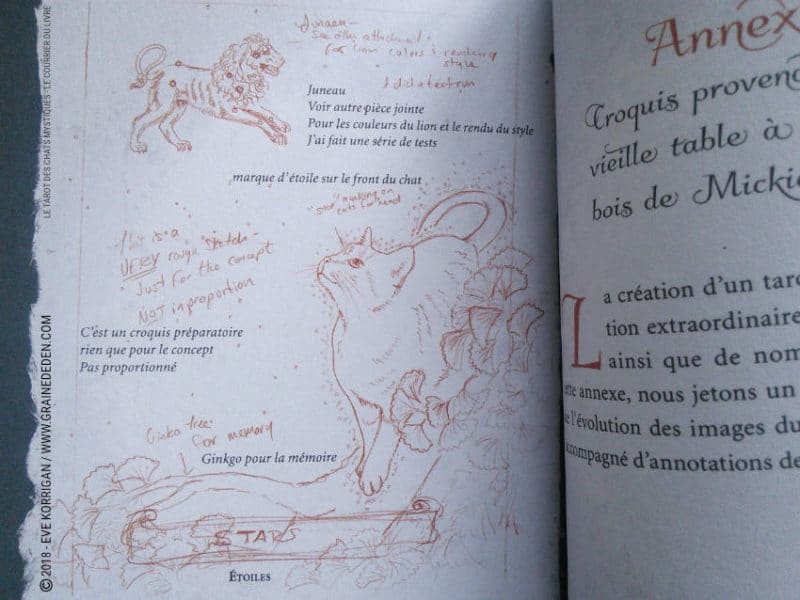 LE TAROT DES CHATS MYSTIQUES - LE COURRIER DU LIVRE
© 2018 - EVE KORRIGAN / WWW.GRAINEDEDEN.COM
Juneau -
See attached
for lion colors & rendering
style
I did a test run
Juneau
Voir autre pièce jointe
Pour les couleurs du lion et le rendu du style
J'ai fait une série de tests
marque d'étoile sur le front du chat
"star" marking on
cats forehead
This is a
VERY rough sketch -
Just for the concept
Not in proportion
C'est un croquis préparatoire
rien que pour le concept
Pas proportionné
Ginko tree:
for memory
Ginkgo pour la mémoire
STARS
ÉTOILES
Annex
Croquis proven
vieille table à
bois de Micki
La création d'un taro
tion extraordinaire
ainsi que de nom
annexe, nous jetons un
l'évolution des images du
accompagné d'annotations de